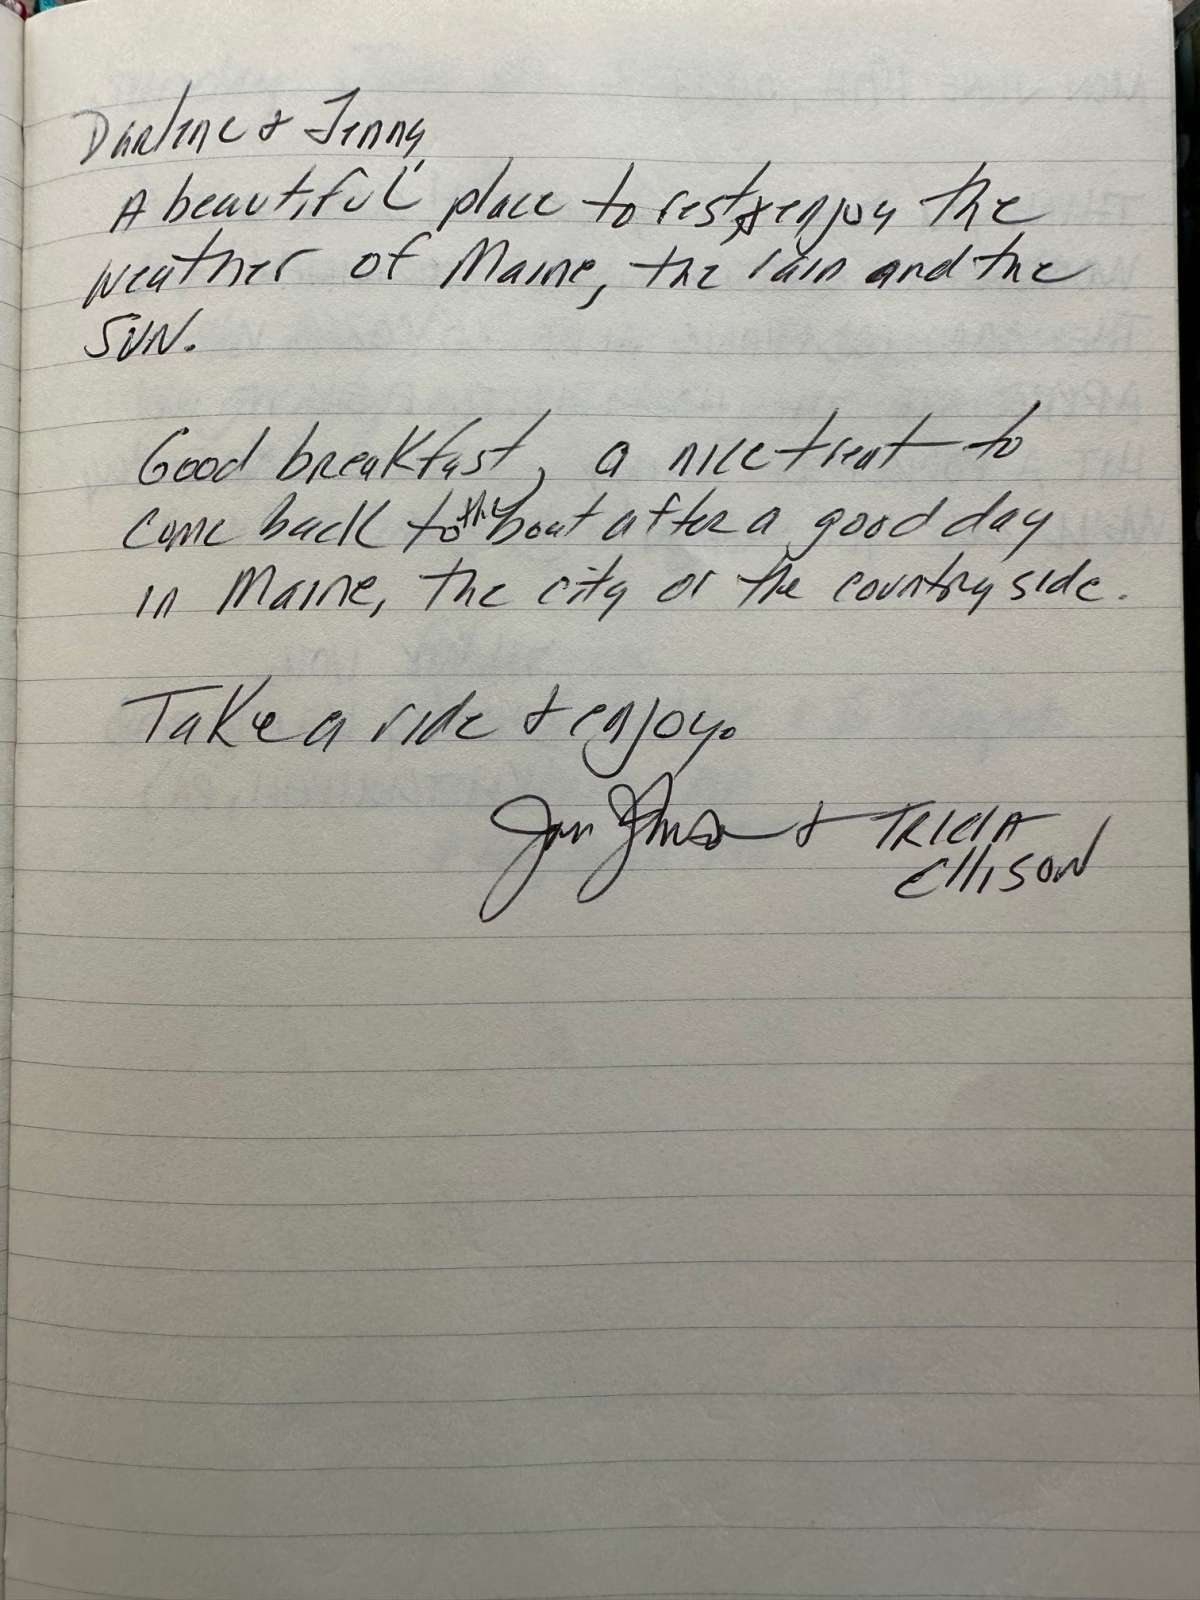 Darlene & Jenny,
A beautiful place to rest, & enjoy the
weather of Maine, the rain and the
SUN.
Good breakfast, a nice treat to
come back to the boat after a good day
in Maine, the city or the countryside.
Take a ride & enjoy.
& TRICIA
Ellison